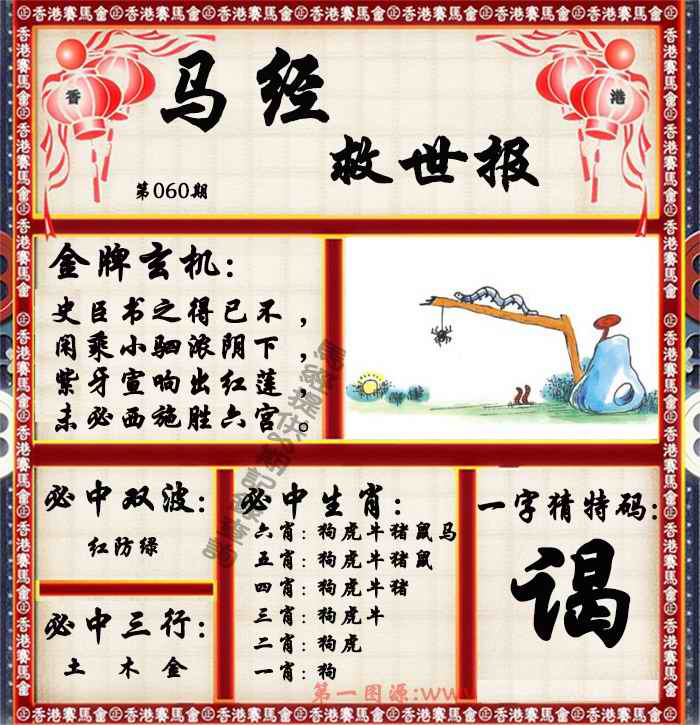 香港賽馬會
香
港
马经
救世报
第060期
金牌玄机:
史臣书之得已不，
闲乘小驷浓阴下，
紫牙宣响出红莲，
未必西施胜六宫。
必中双波:
红防绿
必中三行:
土 木 金
必中生肖:
六肖: 狗虎牛猪鼠马
五肖: 狗虎牛猪鼠
四肖: 狗虎牛猪
三肖: 狗虎牛
二肖: 狗虎
一肖: 狗
一字猜特码:
谒
第一图源:www